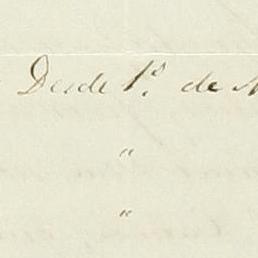 Desde 1.º de
"
"